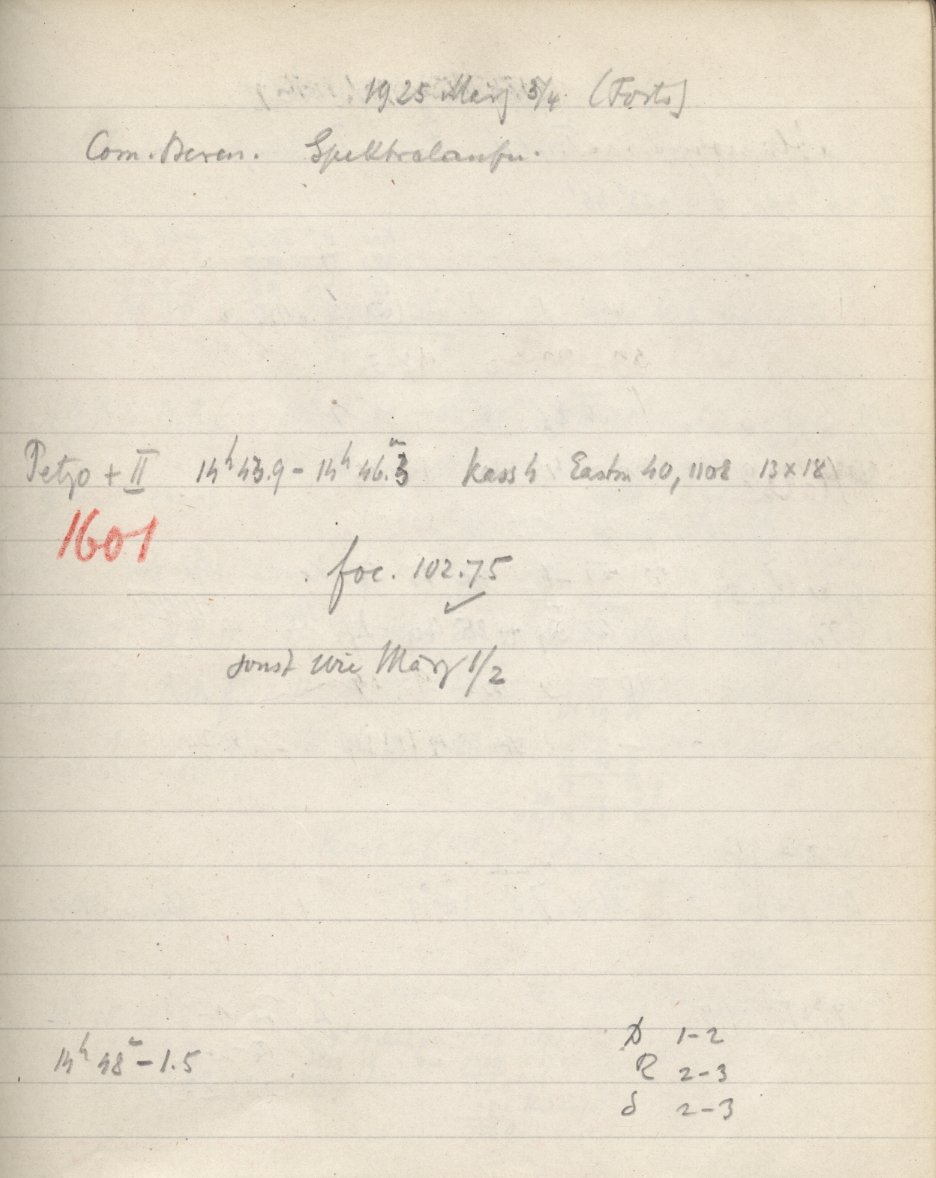 1925 März 3/4 (Forts)
Com. Beren. Spektralaufn.
Petzo + II 14h 43.9 - 14h 46.m3 Kass 4 Eastm 40, 1108 13 x 18
1601
foc. 102.75 ✓
sonst wie März 1/2
14h 48m - 1.5
1-2
R 2-3
2-3